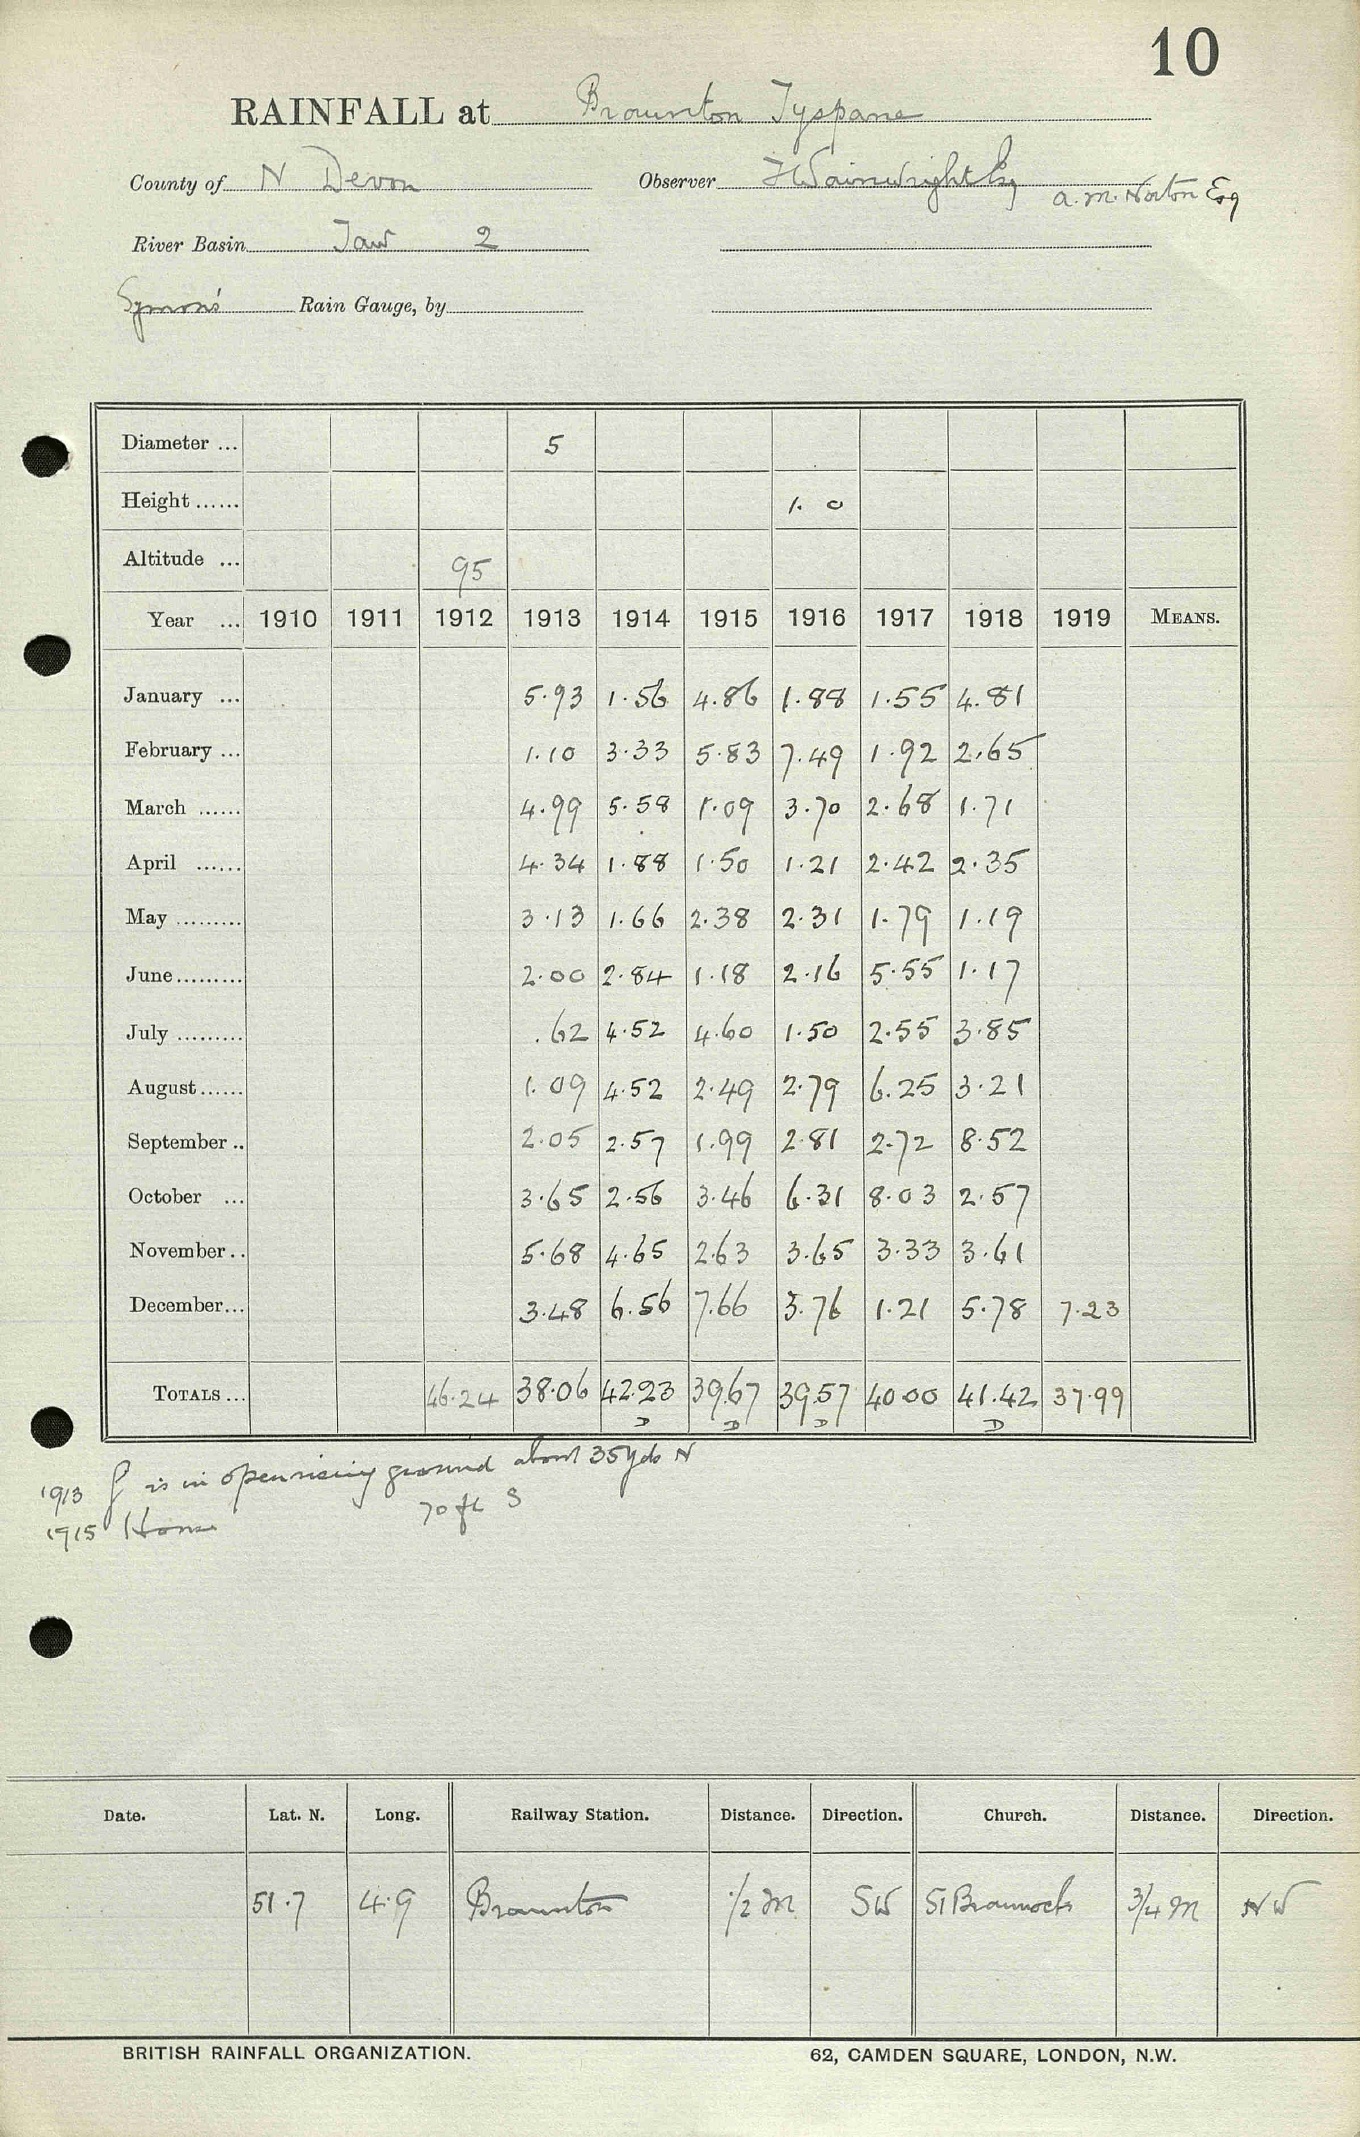 10
RAINFALL at Braunton Tyspane
County of N Devon Observer F Wainwright Esq a.m. Norton Esq
River Basin Taw 2
Symons' Rain Gauge, by
Diameter ... 5
Height ...... 1. 0
Altitude ... 95
Year ... 1910 1911 1912 1913 1914 1915 1916 1917 1918 1919 MEANS.
January ... 5.93 1.56 4.86 1.88 1.55 4.81
February ... 1.10 3.33 5.83 7.49 1.92 2.65
March ...... 4.99 5.58 1.09 3.70 2.68 1.71
April ...... 4.34 1.88 1.50 1.21 2.42 2.35
May ......... 3.13 1.66 2.38 2.31 1.79 1.19
June......... 2.00 2.84 1.18 2.16 5.55 1.17
July ......... .62 4.52 4.60 1.50 2.55 3.85
August...... 1.09 4.52 2.49 2.79 6.25 3.21
September .. 2.05 2.57 1.99 2.81 2.72 8.52
October ... 3.65 2.56 3.46 6.31 8.03 2.57
November.. 5.68 4.65 2.63 3.65 3.33 3.61
December... 3.48 6.56 7.66 3.76 1.21 5.78 7.23
TOTALS ... 46.24 38.06 42.23 39.67 39.57 40.00 41.42 37.99
D D D D
1913 G is in open rising ground about 35 yds N
1915 House 70 ft S
Date. Lat. N. Long. Railway Station. Distance. Direction. Church. Distance. Direction.
51.7 4.9 Braunton 1/2 M SW St Brannocks 3/4 M NW
BRITISH RAINFALL ORGANIZATION. 62, CAMDEN SQUARE, LONDON, N.W.